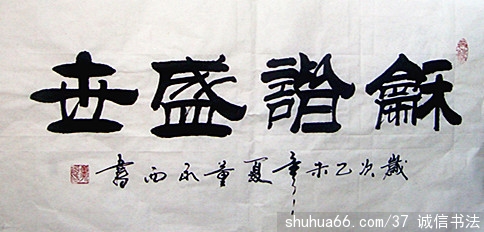 龢諧盛世
歲次乙未年夏董永西書
shuhua66.com/37 诚信书法